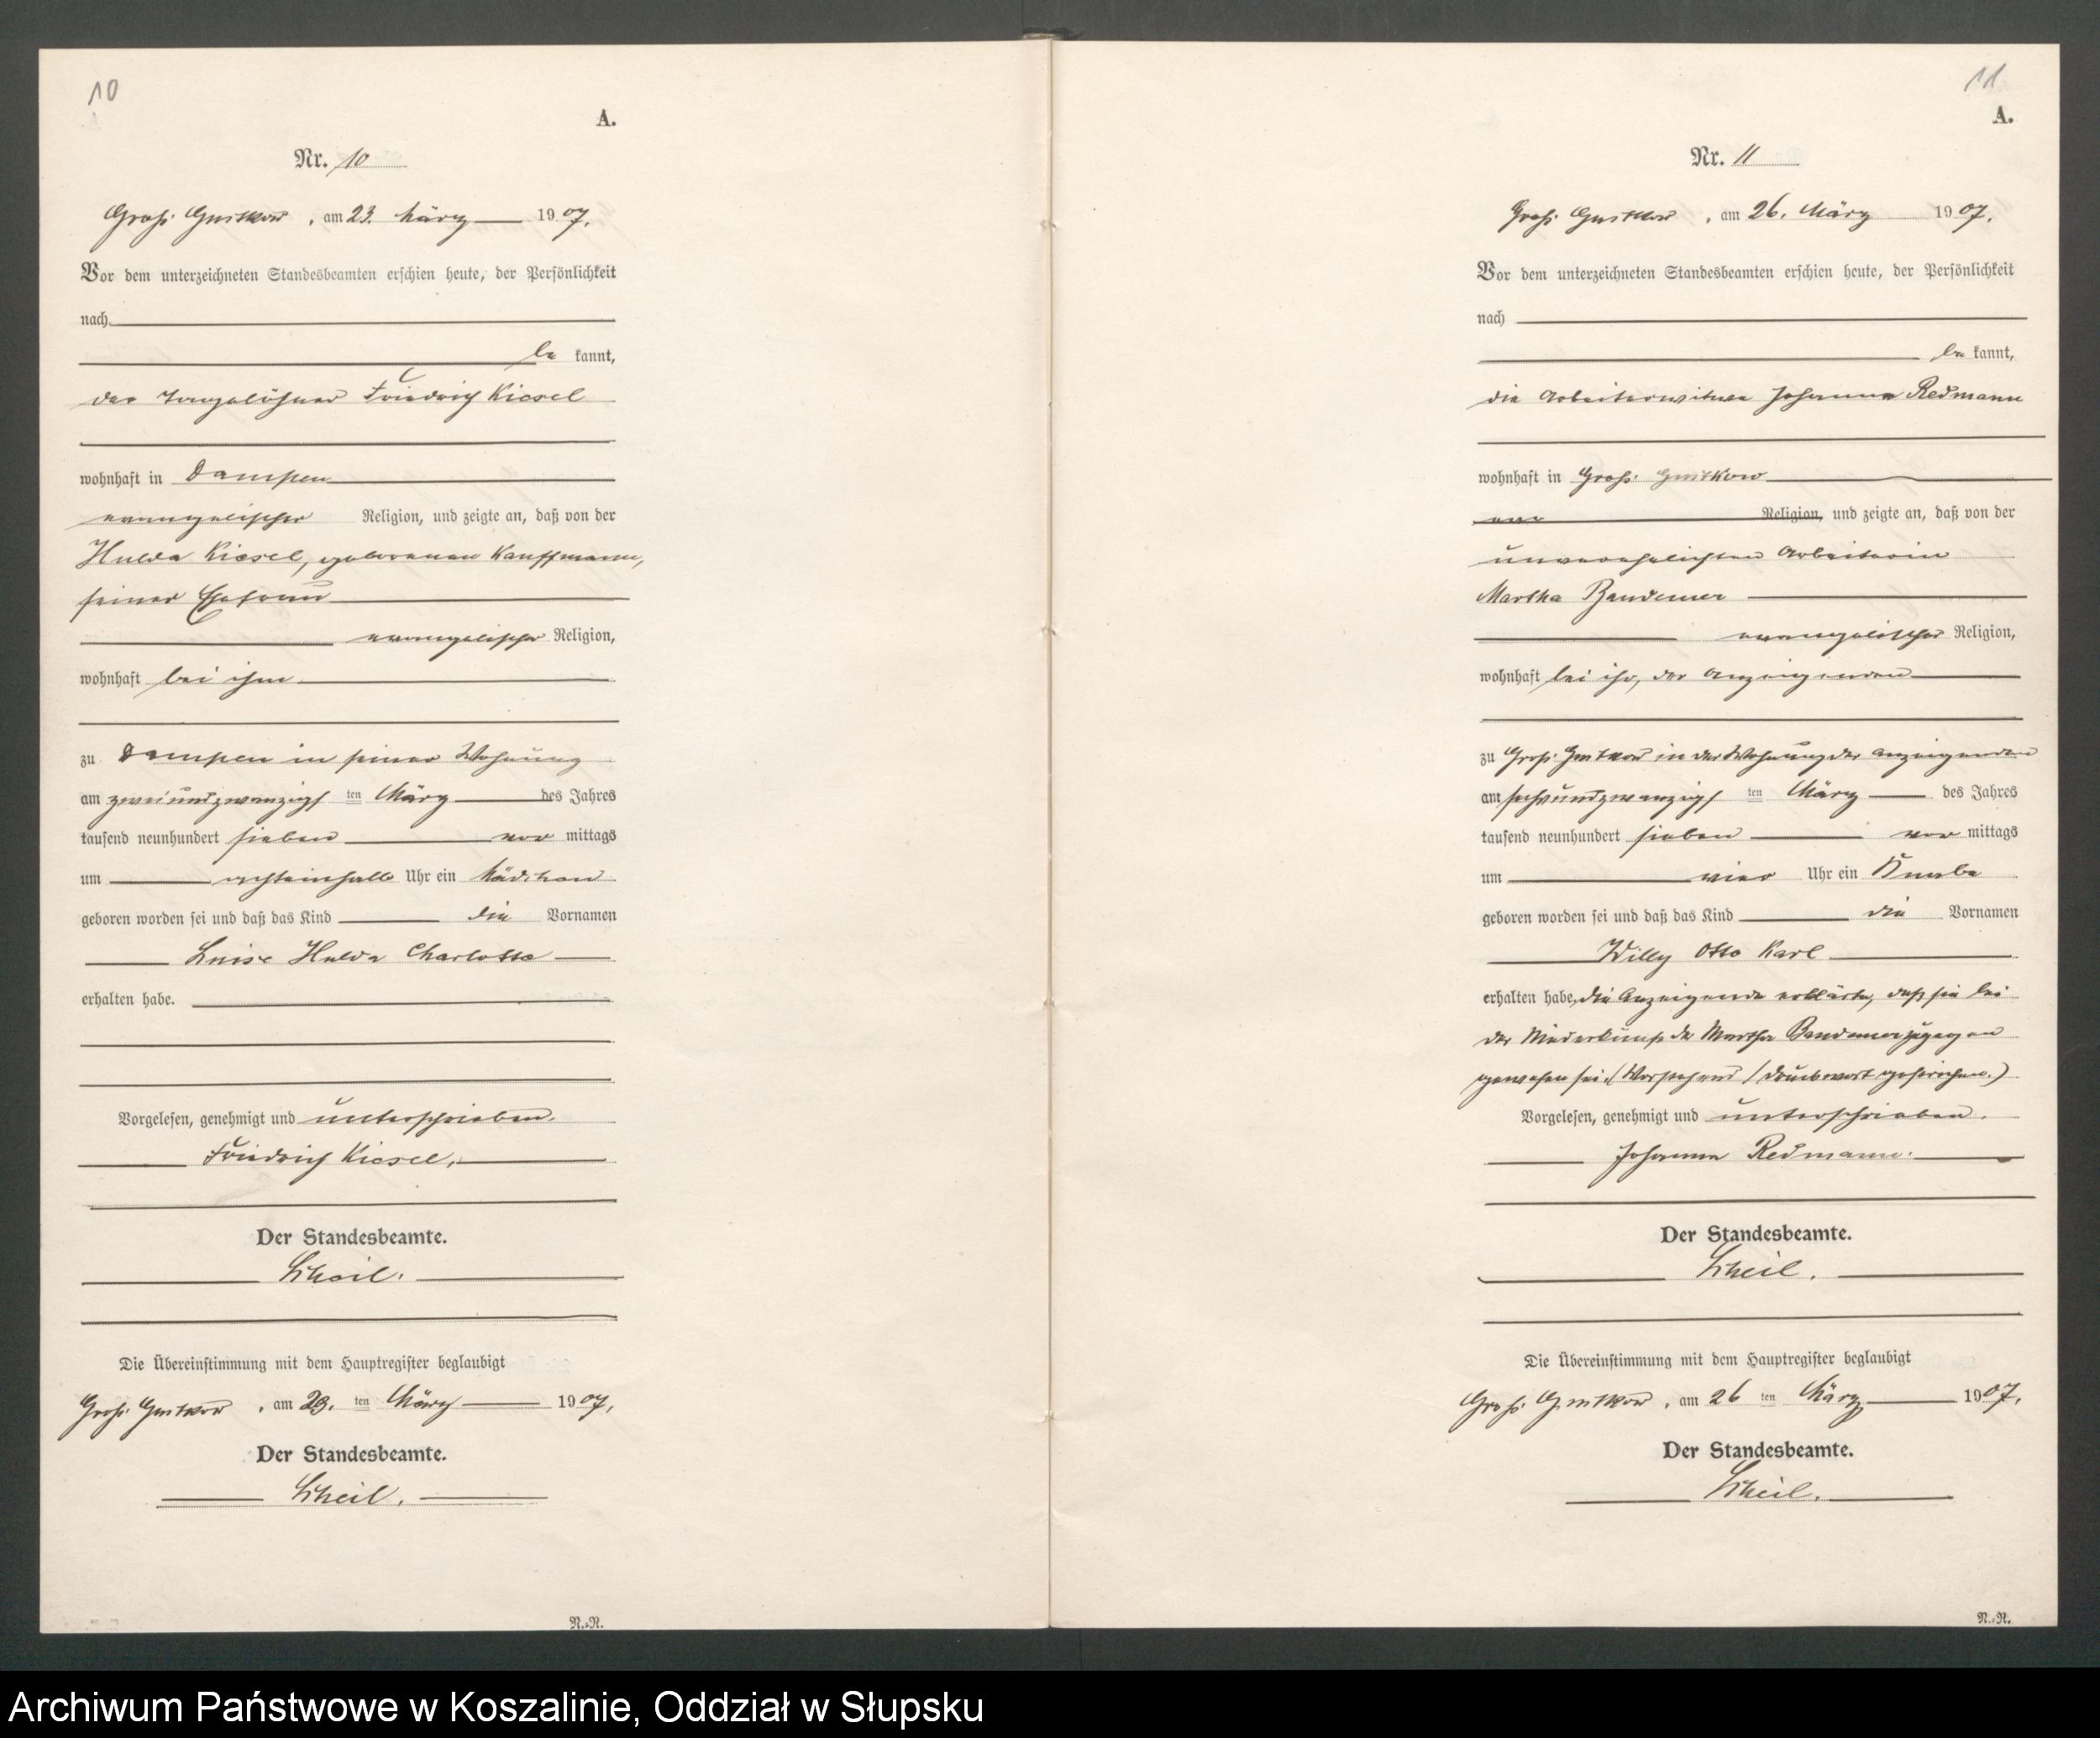 10
A.
Nr. 10
Groß Gustkow, am 23. März 1907.
Vor dem unterzeichneten Standesbeamten erschien heute, der Persönlichkeit
nach
be kannt,
der Tagelöhner Friedrich Kiesel
wohnhaft in Dampen
evangelischer Religion, und zeigte an, daß von der
Hulda Kiesel, geborenen Kauffmann,
seiner Ehefrau
evangelischer Religion,
wohnhaft bei ihm
zu Dampen in seiner Wohnung
am zweiundzwanzigs ten März des Jahres
tausend neunhundert sieben vor mittags
um achteinhalb Uhr ein Mädchen
geboren worden sei und daß das Kind die Vornamen
Luise Hulda Charlotte
erhalten habe.
Vorgelesen, genehmigt und unterschrieben.
Friedrich Kiesel.
Der Standesbeamte.
Scheil.
Die Übereinstimmung mit dem Hauptregister beglaubigt
Groß Gustkow, am 23. ten März 1907.
Der Standesbeamte.
Scheil.
N.-R.
11
A.
Nr. 11
Groß Gustkow, am 26. März 1907.
Vor dem unterzeichneten Standesbeamten erschien heute, der Persönlichkeit
nach
be kannt,
die Arbeiterwitwe Johanna Redmann
wohnhaft in Groß Gustkow
Religion, und zeigte an, daß von der
unverehelichten Arbeiterin
Martha Bandemer
evangelischer Religion,
wohnhaft bei ihr, der Anzeigenden
zu Groß Gustkow in der Wohnung der Anzeigenden
am sechsundzwanzigs ten März des Jahres
tausend neunhundert sieben vor mittags
um vier Uhr ein Knabe
geboren worden sei und daß das Kind die Vornamen
Willy Otto Karl
erhalten habe, die Anzeigende erklärte, daß sie bei
der Niederkunft der Martha Bandemer zugegen
gewesen sei. (Vorstehend 1 Druckwort gestrichen.)
Vorgelesen, genehmigt und unterschrieben.
Johanna Redmann.
Der Standesbeamte.
Scheil.
Die Übereinstimmung mit dem Hauptregister beglaubigt
Groß Gustkow, am 26 ten März 1907.
Der Standesbeamte.
Scheil.
N.-R.
Archiwum Państwowe w Koszalinie, Oddział w Słupsku